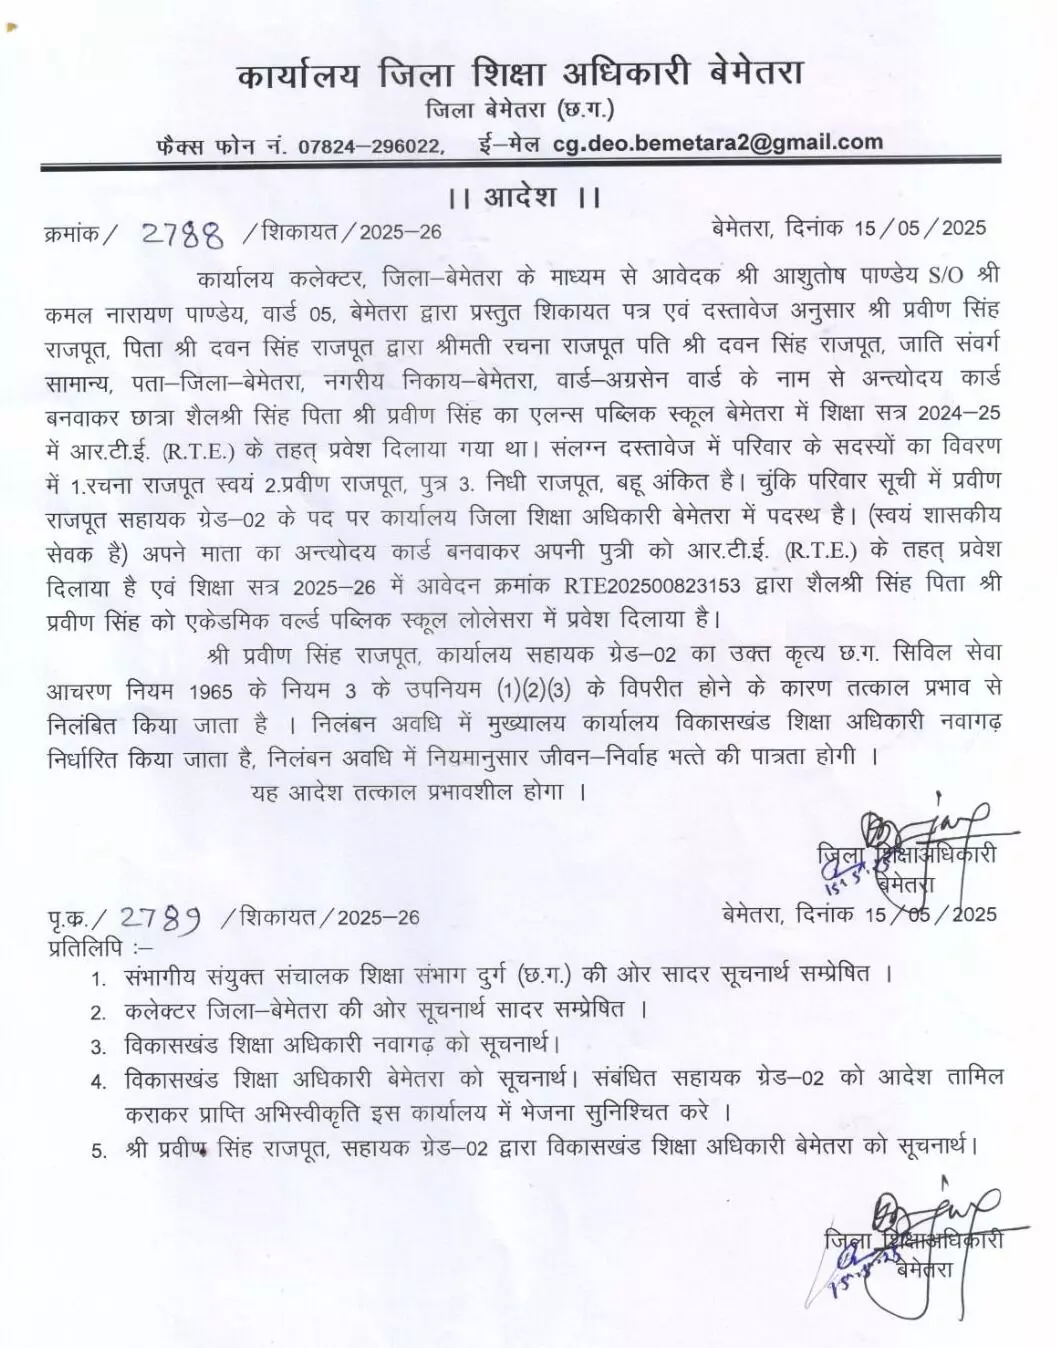 कार्यालय जिला शिक्षा अधिकारी बेमेतरा
जिला बेमेतरा (छ.ग.)
फैक्स फोन नं. 07824–296022, ई–मेल cg.deo.bemetara2@gmail.com
।। आदेश ।।
क्रमांक / 2788 /शिकायत/2025–26 बेमेतरा, दिनांक 15/05/2025
कार्यालय कलेक्टर, जिला–बेमेतरा के माध्यम से आवेदक श्री आशुतोष पाण्डेय S/O श्री
कमल नारायण पाण्डेय, वार्ड 05, बेमेतरा द्वारा प्रस्तुत शिकायत पत्र एवं दस्तावेज अनुसार श्री प्रवीण सिंह
राजपूत, पिता श्री दवन सिंह राजपूत द्वारा श्रीमती रचना राजपूत पति श्री दवन सिंह राजपूत, जाति संवर्ग
सामान्य, पता–जिला–बेमेतरा, नगरीय निकाय–बेमेतरा, वार्ड–अग्रसेन वार्ड के नाम से अन्त्योदय कार्ड
बनवाकर छात्रा शैलश्री सिंह पिता श्री प्रवीण सिंह का एलन्स पब्लिक स्कूल बेमेतरा में शिक्षा सत्र 2024–25
में आर.टी.ई. (R.T.E.) के तहत् प्रवेश दिलाया गया था। संलग्न दस्तावेज में परिवार के सदस्यों का विवरण
में 1.रचना राजपूत स्वयं 2.प्रवीण राजपूत, पुत्र 3. निधी राजपूत, बहू अंकित है। चुंकि परिवार सूची में प्रवीण
राजपूत सहायक ग्रेड–02 के पद पर कार्यालय जिला शिक्षा अधिकारी बेमेतरा में पदस्थ है। (स्वयं शासकीय
सेवक है) अपने माता का अन्त्योदय कार्ड बनवाकर अपनी पुत्री को आर.टी.ई. (R.T.E.) के तहत् प्रवेश
दिलाया है एवं शिक्षा सत्र 2025–26 में आवेदन क्रमांक RTE202500823153 द्वारा शैलश्री सिंह पिता श्री
प्रवीण सिंह को एकेडमिक वर्ल्ड पब्लिक स्कूल लोलेसरा में प्रवेश दिलाया है।
श्री प्रवीण सिंह राजपूत, कार्यालय सहायक ग्रेड–02 का उक्त कृत्य छ.ग. सिविल सेवा
आचरण नियम 1965 के नियम 3 के उपनियम (1)(2)(3) के विपरीत होने के कारण तत्काल प्रभाव से
निलंबित किया जाता है । निलंबन अवधि में मुख्यालय कार्यालय विकासखंड शिक्षा अधिकारी नवागढ़
निर्धारित किया जाता है, निलंबन अवधि में नियमानुसार जीवन–निर्वाह भत्ते की पात्रता होगी ।
यह आदेश तत्काल प्रभावशील होगा ।
जिला शिक्षाअधिकारी
15.5.25
बेमेतरा
पृ.क्र./ 2789 /शिकायत/2025–26 बेमेतरा, दिनांक 15/05/2025
प्रतिलिपि :–
1. संभागीय संयुक्त संचालक शिक्षा संभाग दुर्ग (छ.ग.) की ओर सादर सूचनार्थ सम्प्रेषित ।
2. कलेक्टर जिला–बेमेतरा की ओर सूचनार्थ सादर सम्प्रेषित ।
3. विकासखंड शिक्षा अधिकारी नवागढ़ को सूचनार्थ।
4. विकासखंड शिक्षा अधिकारी बेमेतरा को सूचनार्थ। संबंधित सहायक ग्रेड–02 को आदेश तामिल
कराकर प्राप्ति अभिस्वीकृति इस कार्यालय में भेजना सुनिश्चित करे ।
5. श्री प्रवीण सिंह राजपूत, सहायक ग्रेड–02 द्वारा विकासखंड शिक्षा अधिकारी बेमेतरा को सूचनार्थ।
जिला शिक्षाअधिकारी
15.5.25
बेमेतरा